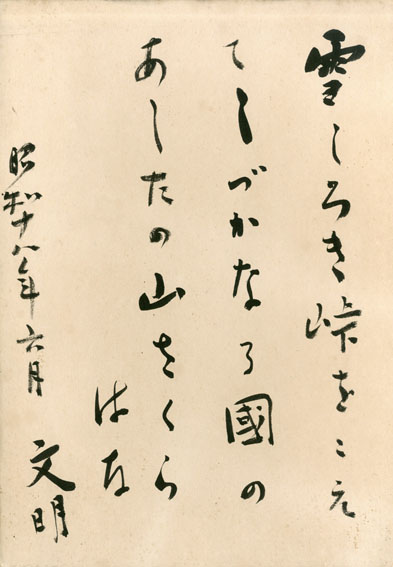 雪しろき峠をこえ
てしづかなる國の
あしたの山さくら
はな
昭和十八年六月
文明